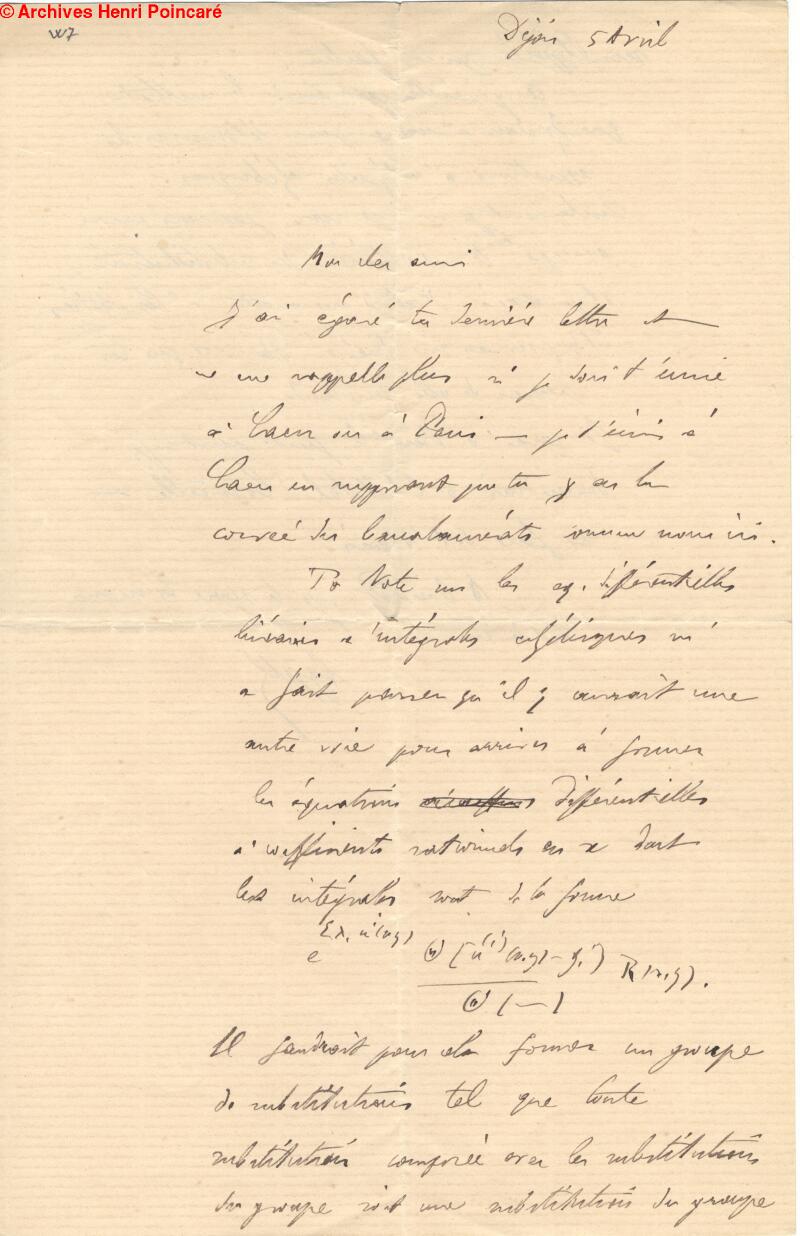 © Archives Henri Poincaré
Dijon 5 Avril
Mon cher ami
J'ai égaré ta dernière lettre et
ne me rappelle plus si je dois t'écrire
à Caen ou à Paris — je t'écris à
Caen en supposant que tu y as la
corvée des baccalauréats comme nous ici.
Ta Note sur les eq. différentielles
linéaires à intégrales algébriques m'
a fait penser qu'il y aurait une
autre voie pour arriver à former
les équations différentielles
à coefficients rationnels en x dont
les intégrales sont de la forme
e^{Σλ_i u^i(x,y)} Θ[u^{(i)}(x,y) – g_i] / Θ(—) R(x,y).
Il faudrait pour cela former un groupe
de substitutions tel que toute
substitution composée avec les substitutions
du groupe soit une substitution du groupe